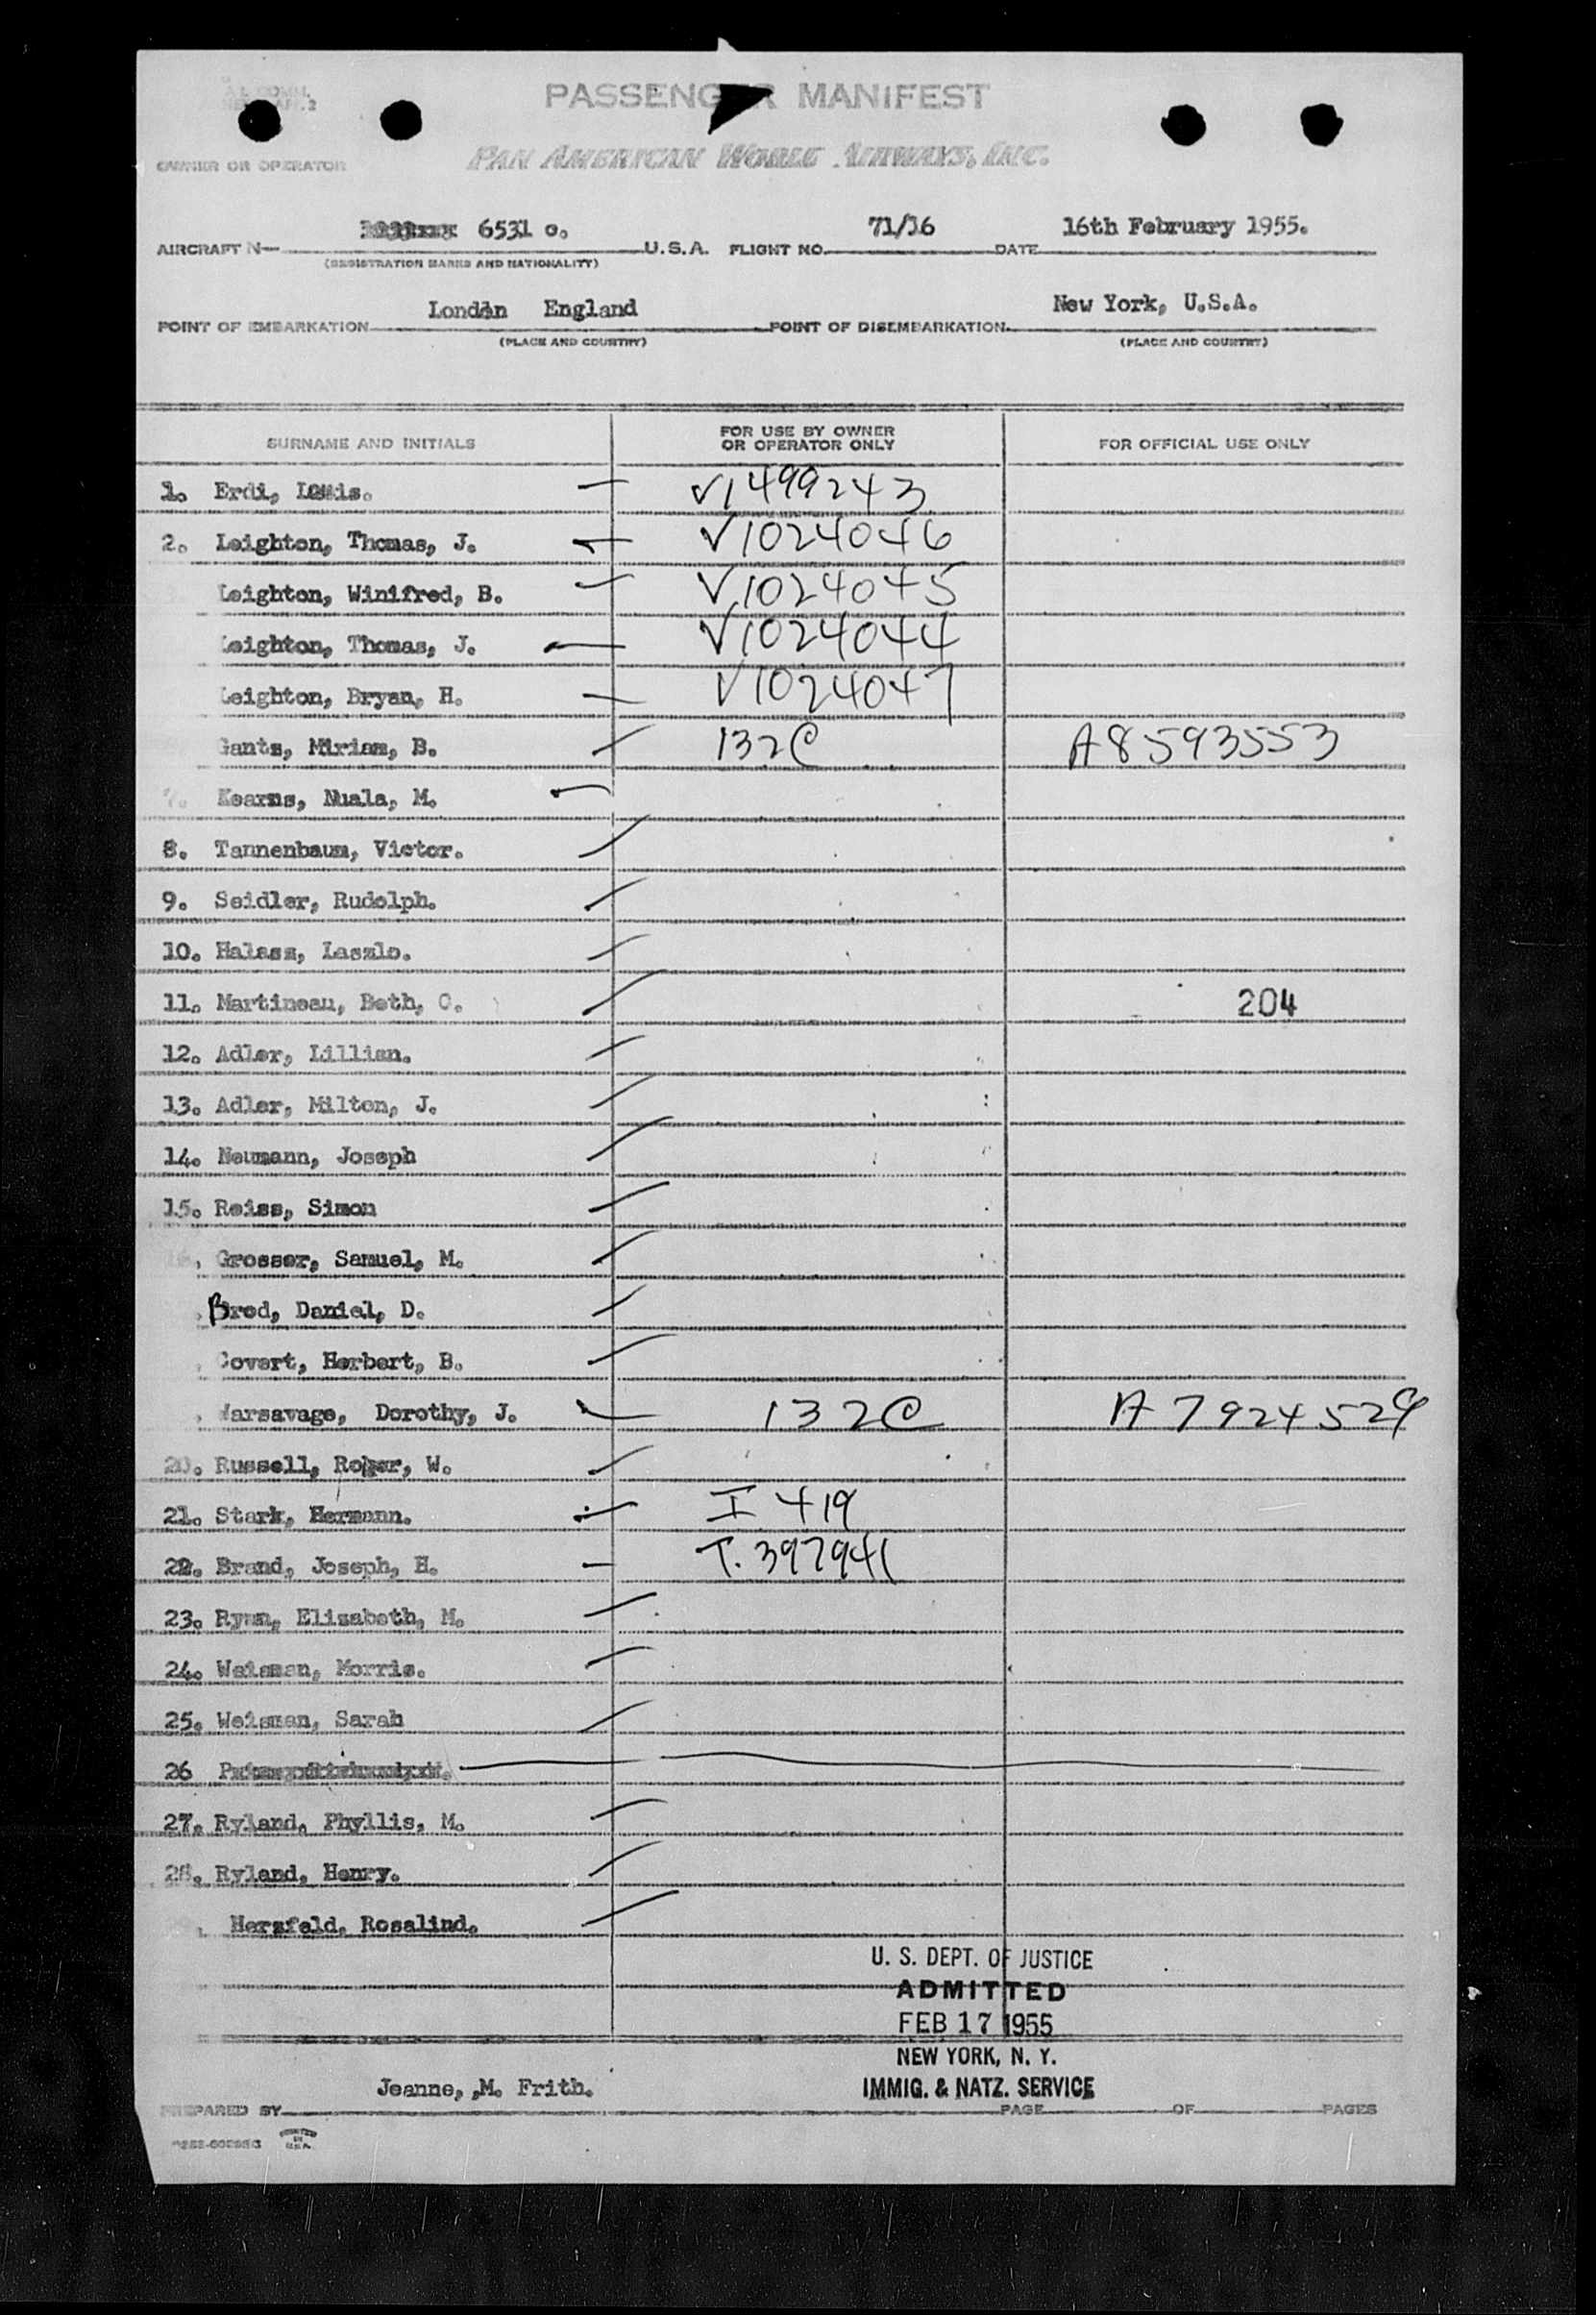 PASSENGER MANIFEST
CARRIER OR OPERATOR PAN AMERICAN WORLD AIRWAYS, INC.
AIRCRAFT N— 6531 o. U.S.A. FLIGHT NO. 71/16 DATE 16th February 1955.
(REGISTRATION MARKS AND NATIONALITY)
POINT OF EMBARKATION London England POINT OF DISEMBARKATION New York, U.S.A.
(PLACE AND COUNTRY) (PLACE AND COUNTRY)
SURNAME AND INITIALS FOR USE BY OWNER OR OPERATOR ONLY FOR OFFICIAL USE ONLY
1. Erdi, Louis. V1499243
2. Leighton, Thomas, J. V1024046
Leighton, Winifred, B. V1024045
Leighton, Thomas, J. V1024044
Leighton, Bryan, H. V1024047
Gants, Miriam, B. 132C A8593553
7. Kearns, Nuala, M.
8. Tannenbaum, Victor.
9. Seidler, Rudolph.
10. Halasz, Laszlo.
11. Martineau, Beth, C. 204
12. Adler, Lillian.
13. Adler, Milton, J.
14. Neumann, Joseph
15. Reiss, Simon
Grosser, Samuel, M.
Brod, Daniel, D.
Covert, Herbert, B.
Warsavage, Dorothy, J. 132C A7924529
20. Russell, Roger, W.
21. Stark, Hermann. I 419
22. Brand, Joseph, H. T. 397941
23. Ryan, Elizabeth, M.
24. Weisman, Morris.
25. Weisman, Sarah
26
27. Ryland, Phyllis, M.
28. Ryland, Henry.
Herzfeld, Rosalind.
U. S. DEPT. OF JUSTICE
ADMITTED
FEB 17 1955
NEW YORK, N. Y.
IMMIG. & NATZ. SERVICE
PREPARED BY Jeanne, ,M. Frith. PAGE OF PAGES
PRINTED IN U.S.A.